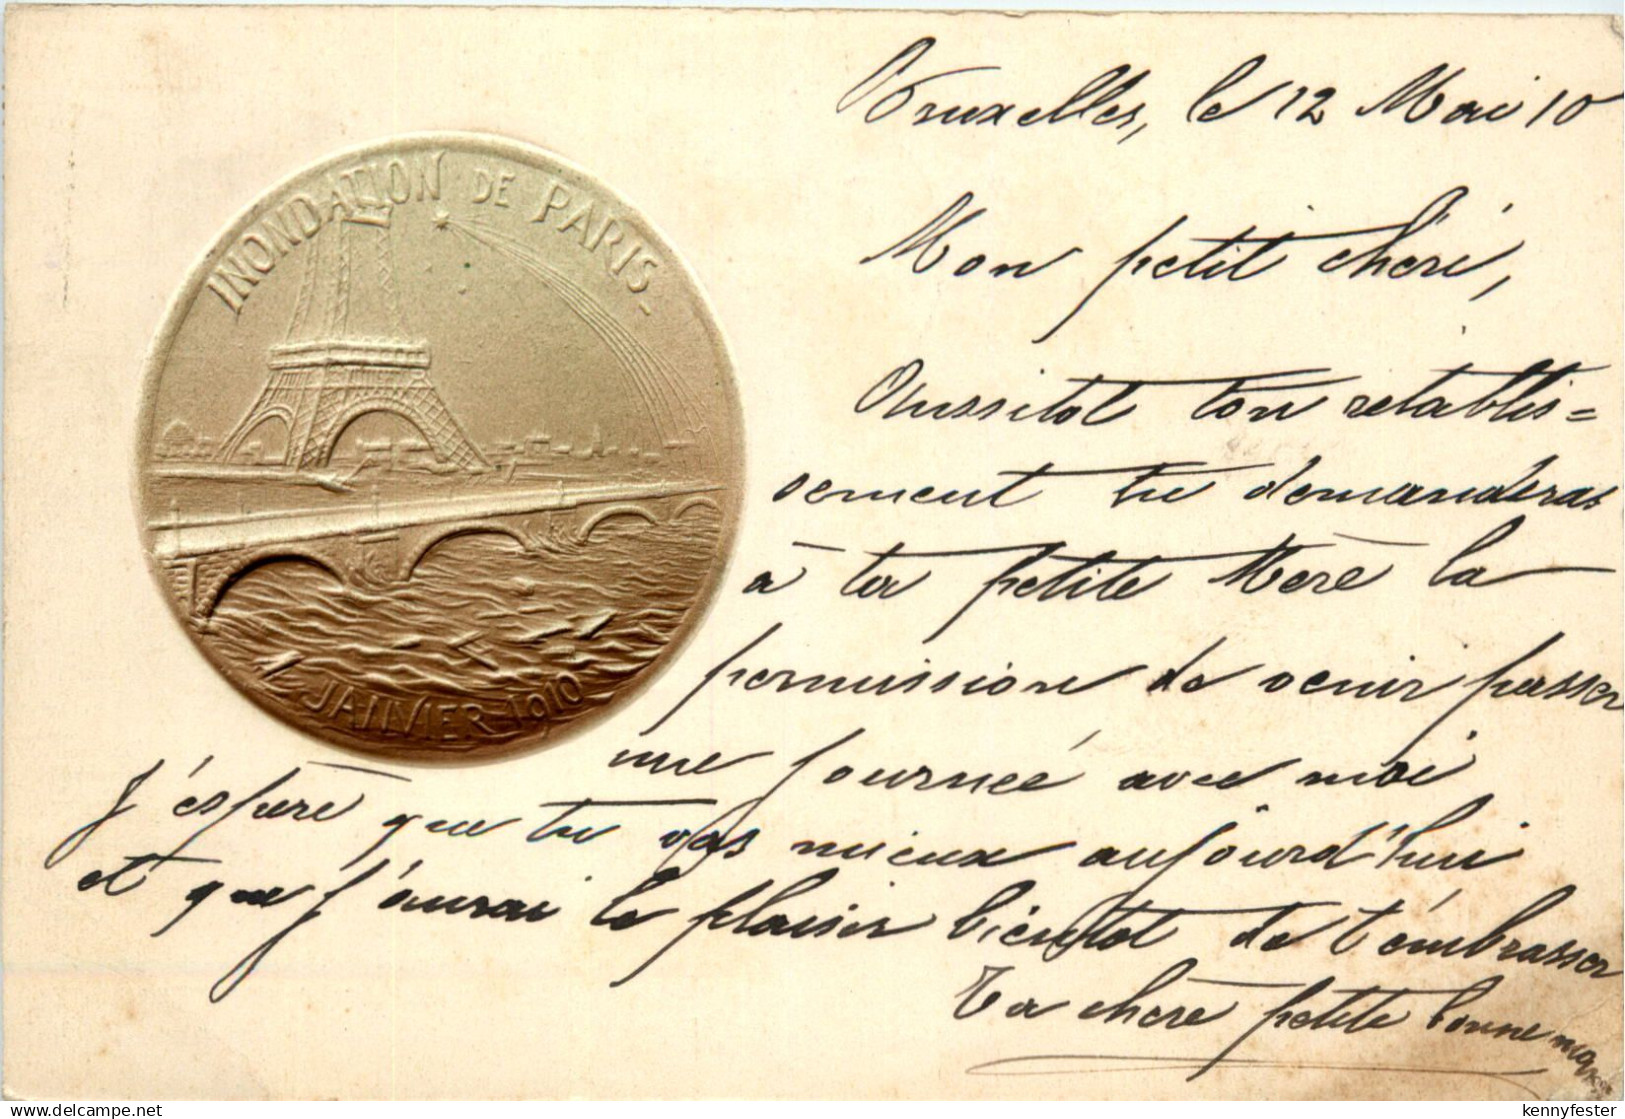 INONDATION DE PARIS_
JANVIER 1910
Bruxelles, le 12 Mai 10
Mon petit chéri,
Aussitot ton retablis=
sement tu demanderas
à ta petite Mère la
permission de venir passer
une journeé avec moi
J'éspère que tu vas mieux aujourd'hui
et que j'aurai le plaisir bientot de t'embrasser
Ta chère petite bonne
delcampe.net
kennyfester